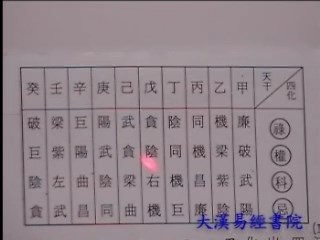 癸 壬 辛 庚 己 戊 丁 丙 乙 甲 天干 四化
破 梁 巨 陽 武 貪 陰 同 機 廉 祿
巨 紫 陽 武 貪 陰 同 機 梁 破 權
陰 左 曲 陰 梁 右 機 昌 紫 武 科
貪 武 昌 同 曲 機 巨 廉 陰 陽 忌
大漢易經書院